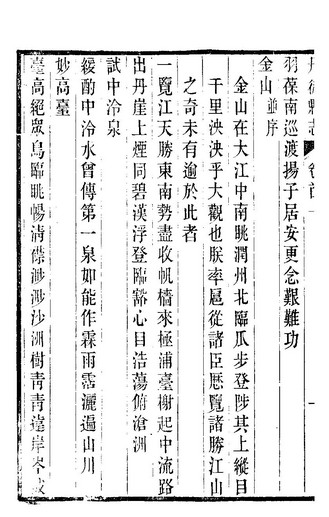 丹徒縣志 卷首
羽葆南巡渡揚子居安更念艱難功
金山 並序
金山在大江中南眺潤州北臨瓜步登陟其上縱目
千里泱泱乎大觀也朕率扈從諸臣歷覽諸勝江山
之奇未有逾於此者
一覽江天勝東南勢盡收帆檣來極浦臺榭起中流路
出丹崖上煙同碧漢浮登臨豁心目浩蕩俯滄洲
試中泠泉
緩酌中泠水曾傳第一泉如能作霖雨霑灑遍山川
妙高臺
臺高絕眾鳥臨眺暢清襟渺渺沙洲樹青青遠岸岑波